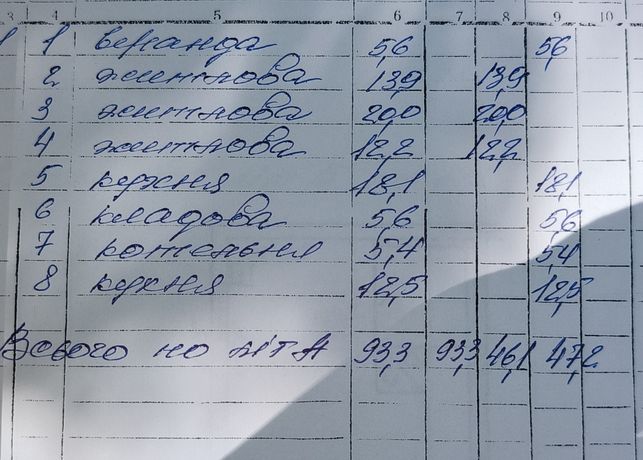 3 4 5 6 7 8 9 10
1 1 веранда 5,6 5,6
2 житлова 13,9 13,9
3 житлова 20,0 20,0
4 житлова 12,2 12,2
5 кухня 18,1 18,1
6 кладова 5,6 5,6
7 котельня 5,4 5,4
8 кухня 12,5 12,5
Всього по літ А 93,3 93,3 46,1 47,2